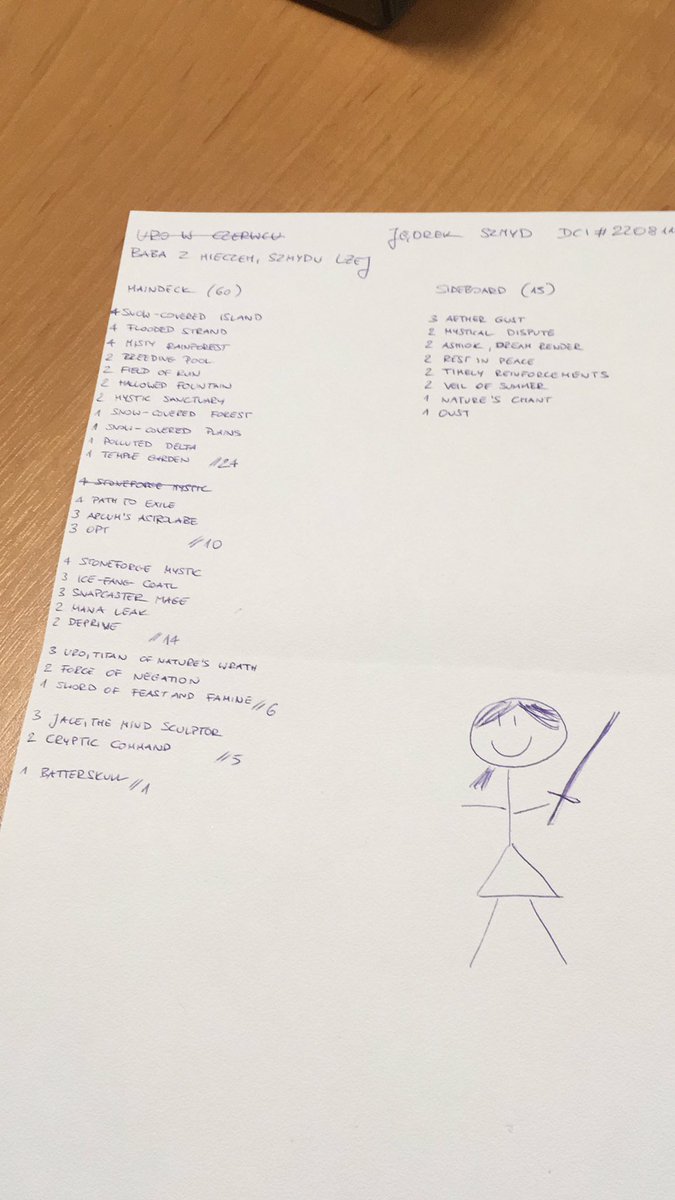 URO W CZERWCU
BABA Z MIECZEM, SZMYDU LŻEJ
JĘDREK SZMYD DCI # 220811
MAINDECK (60)
4 SNOW-COVERED ISLAND
4 FLOODED STRAND
4 MISTY RAINFOREST
2 BREEDING POOL
2 FIELD OF RUIN
2 HALLOWED FOUNTAIN
2 MYSTIC SANCTUARY
1 SNOW-COVERED FOREST
1 SNOW-COVERED PLAINS
1 POLLUTED DELTA
1 TEMPLE GARDEN //24
4 STONEFORGE MYSTIC
4 PATH TO EXILE
3 ARCUM'S ASTROLABE
3 OPT
//10
4 STONEFORGE MYSTIC
3 ICE-FANG COATL
3 SNAPCASTER MAGE
2 MANA LEAK
2 DEPRIVE
//14
3 URO, TITAN OF NATURE'S WRATH
2 FORCE OF NEGATION
1 SWORD OF FEAST AND FAMINE //6
3 JACE, THE MIND SCULPTOR
2 CRYPTIC COMMAND
//5
1 BATTERSKULL //1
SIDEBOARD (15)
3 AETHER GUST
2 MYSTICAL DISPUTE
2 ASHIOK, DREAM RENDER
2 REST IN PEACE
2 TIMELY REINFORCEMENTS
2 VEIL OF SUMMER
1 NATURE'S CHANT
1 DUST